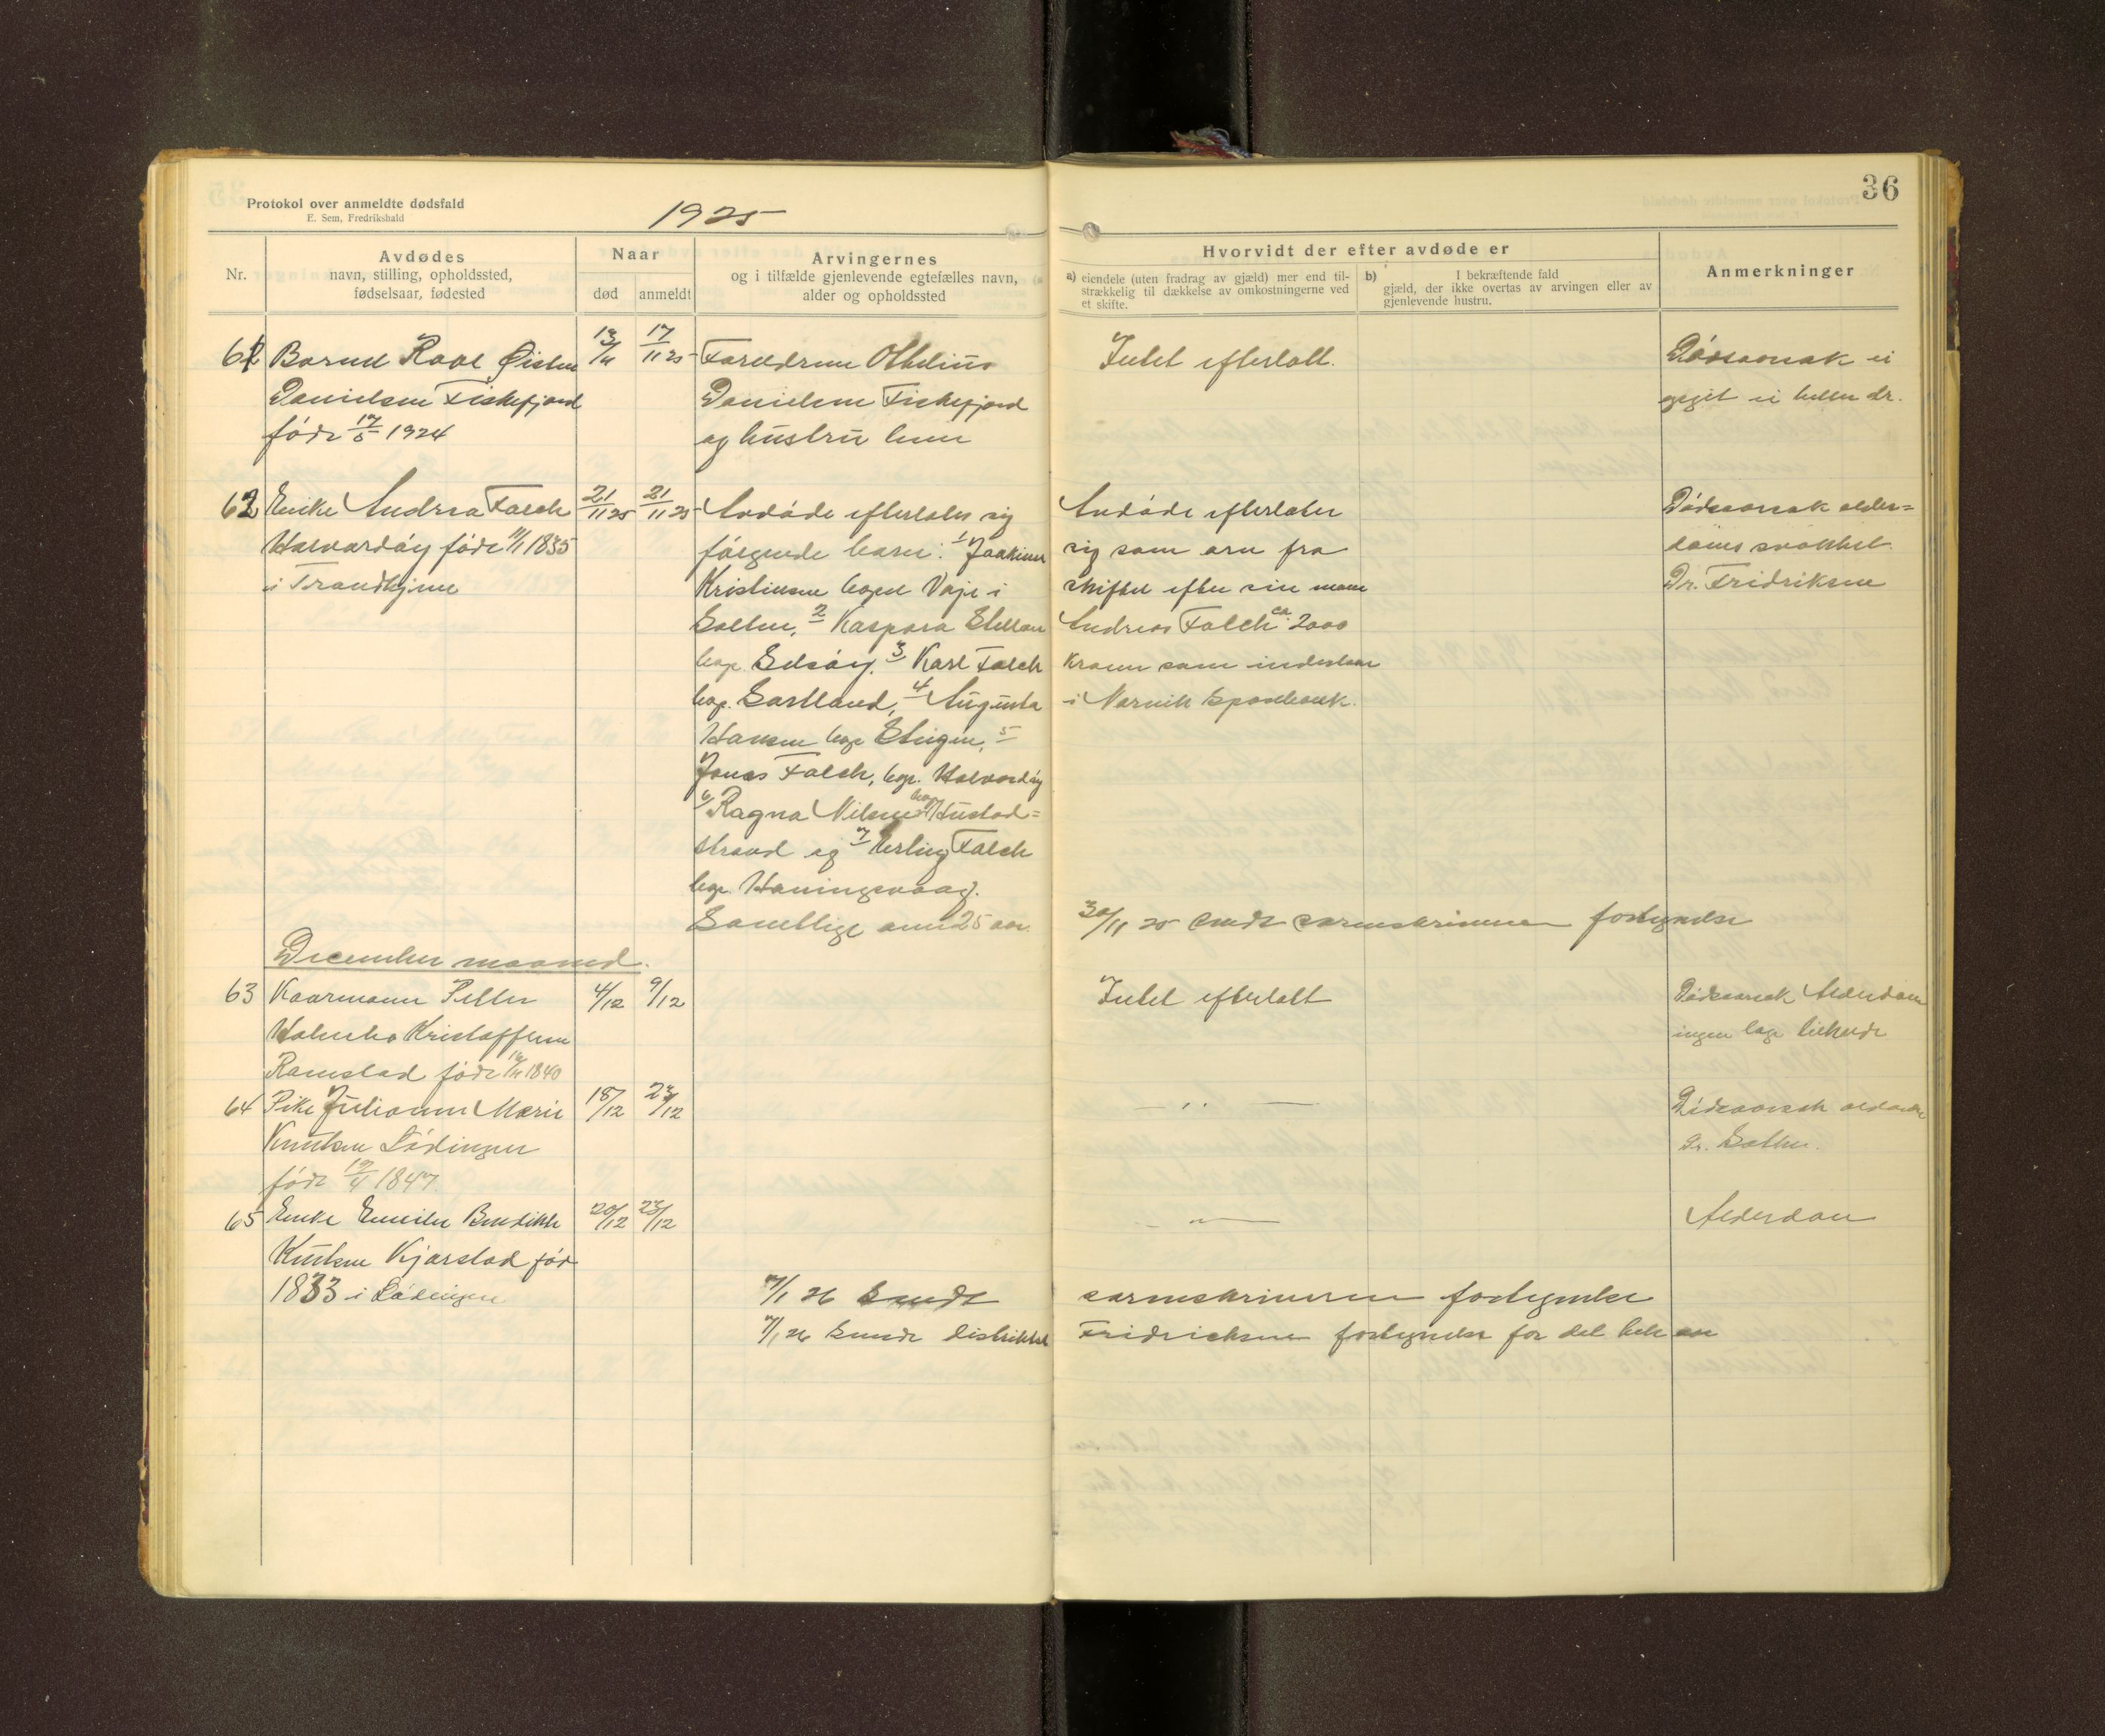 36
Protokol over anmeldte dødsfald
E. Sem, Fredrikshald
1925
Nr.
Avdødes
navn, stilling, opholdssted,
fødselsaar, fødested
Naar
død
anmeldt
Arvingernes
og i tilfælde gjenlevende egtefælles navn,
alder og opholdssted
Hvorvidt der efter avdøde er
a) eiendele (uten fradrag av gjæld) mer end til-
strækkelig til dækkelse av omkostningerne ved
et skifte.
b) I bekræftende fald
gjæld, der ikke overtas av arvingen eller av
gjenlevende hustru.
Anmerkninger
61 Barnet Roal Øisten 13/11 17/11 25 Forældrene Othelius Intet efterlatt. Dødsaarsak ei
Danielsen Fiskefjord Danielsen Fiskefjord opgit ei heller dr.
født 17/5 1924 og hustru
62 Enke Andrea Falch 21/11 25 21/11 25 Avdøde efterlater sig Avdøde efterlater Dødsaarsak alder=
Halvardøy født 11/1 1835 følgende barn: 1 Joakim sig som arv fra doms svakhet
i Trondhjem Kristiansen bopæl Vaje i skiftet efter sin mann Dr. Fridriksen
Salten, 2 Kaspara Ellefsen Andreas Falch ca 2000
bop. Selsøy. 3 Karl Falch kroner som indestaar
bop. Sortland, 4 Augusta i Narvik Sparebank.
Hansen bop Steigen, 5
Jonas Falch, bop. Halvardøy
6 Ragna Nilsen bop Hustad=
strand og 7 Erling Falch
bop. Honingsvaag.
Samtlige over 25 aar.
30/11 25 sendt sorenskriveren fortegnelse
December maaned.
63 Kaarmann Petter 4/12 9/12 Intet efterlatt Dødsaarsak Alderdom
Kristoffersen ingen læge tilkaldt
Ramstad født 16/11 1840
64 Pike Julianne Marie 18/12 23/12 — " — Dødsaarsak alderdom
Knutsen Lødingen Dr.
født 19/4 1847.
65 Enke Emilie Bendikte 20/12 23/12 — " — Alderdom
Knutsen Kjarstad født
1833 i Lødingen
7/1 26 Sendt sorenskriveren fortegnelse
7/1 26 Sendt distriktsl Fridricksen fortegnelse for det hele aar